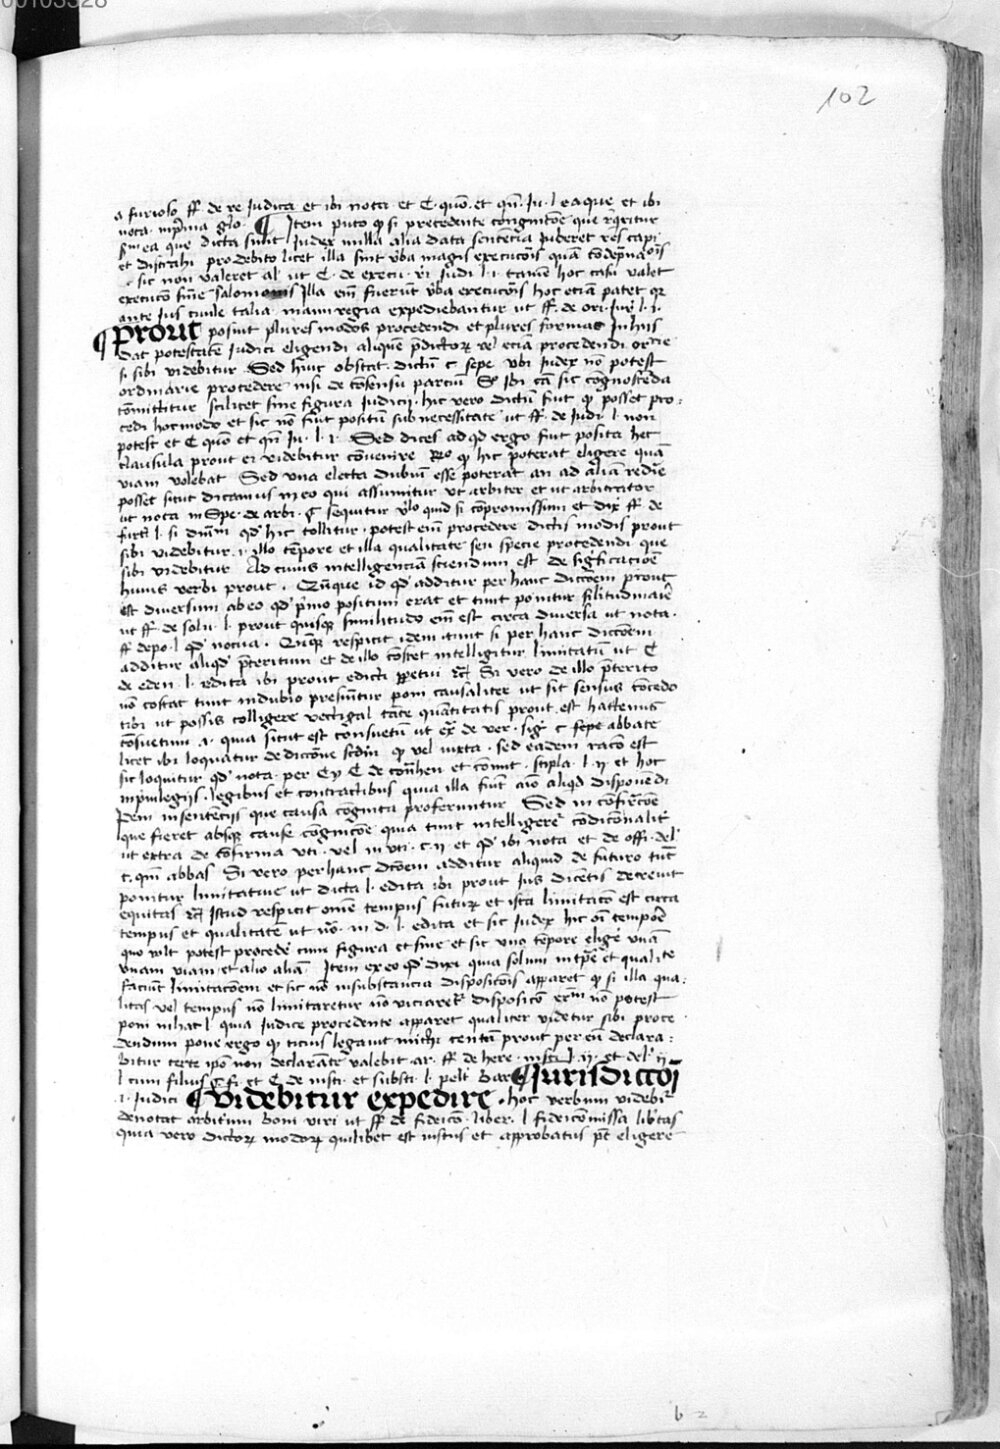 00103328
102
a furioso ff. de re Judica et ibi nota et C. quo. et qn. Ju. l. eaque et ibi
nota. in prima glo. ¶ Item puto q si precedente congnicoe que rqritur
sm ea que dicta sunt Judex nulla alia data sentencia Juberet res capi
et distrahi pro debito licet illa sint vba magis execucois quam
sic non valeret al ut C. de execu. rei Judi l. i. tamen hoc casu valet
execuco sine Salomonis Illa em fuerut vba execucois hoc etiam patet qr
ante Jus civile talia manu regia expediebantur ut ff. de ori. Jur. l. i.
¶ Prout possint plures modos procedendi et plures formas In hiis
Dat potestatem Judici eligendi aliquem pdictorum vel etiam procedendi
si sibi videbitur Sed huic obstat. dictu c sepe ubi Judex no potest
ordinarie procedere nisi de consensu parcium Ibi ca sic congnoscenda
comittitur scilicet sine figura Judicii. hic vero dictu fuit q posset pro:
cedi hoc modo et sic no fuit positu sub necessitate ut ff. de Judi. l. non
potest et C quo et qn Ju. l. i. Sed dices ad qd ergo fuit posita hec
clausula prout ei videbitur convenire q hic poterat eligere quam
viam volebat Sed una electa dubium esse poterat an ad aliam redire
posset sicut dicamus in eo qui assumitur ut arbiter et ut arbitrator
ut nota in Spe. de arbi. § sequitur quid si compromissum et dix ff. de
furti l. si qd hic tollitur. potest em procedere dictis modis prout
sibi videbitur. i. illo tempore et illa qualitate seu specie procedendi. que
sibi videbitur Ad cuius intelligenciam sciendum est de significacione
huius verbi prout. id qd additur per hanc diccoem prout
est diversum ab eo qd primo positum erat et tunc ponitur
ut ff. de solu. l. prout quisque similitudo em est circa diversa ut nota.
ff depo. l qd nerva. respicit idem si per hanc diccoem
additur aliqd preteritum et de illo constet intelligitur limitatum ut C
de eden. l. edita ibi prout edicti Si vero de illo preterito
no costat tunc in dubio presumitur poni causaliter ut sit sensus concedo
tibi ut possis colligere vectigal quantitatis prout est hactenus
consuetum .i. quia sicut est consuetu ut ex de ver. sig c sepe abbate
licet ibi loquatur de diccone q vel iuxta. sed eadem raco est
sic loquitur qd nota. per Cy C de et comit. stipla. l. ij et hoc
in privilegiis. legibus et contractibus quia illa sunt aio aliqd disponedi
Idem in sentenciis que causa congnita proferuntur Sed in
que fieret absque cause congnicoe quia tunc condiconalit
ut extra de confirma uti. vel in uti. c. ij. et qd ibi nota et de offi. del
c. qm abbas Si vero per hanc dcoem additur aliquid de futuro tuc
ponitur limitative ut dicta l. edita ibi prout Jus dicetis decrevit
equitas Istud respicit omne tempus futurum et ista limitaco est circa
tempus et qualitatem ut in d. l. edita et sic Judex hic oi tempore
quo vult potest procedere cum figura et sine et sic uno tempore
unam viam et alio aliam Item ex eo qd dixi quia solum
faciunt limitacoem et sic no in substancia disposicois apparet q si illa qua:
litas vel tempus no limitaretur no viciaretur disposico no potest
poni quia Judice procedente apparet qualiter videtur sibi proce
dendum pone ergo q ticius legavit michi centum prout per eum declara:
bitur certe no declarante valebit ar. ff. de here. insti l. ij
l cum filius et C de insti. et substi l. Bar ¶ Jurisdiccoi
.i. Judici ¶ Videbitur expedire. hoc verbum videbitur
denotat arbitrium boni viri ut ff. de fideico. liber. l fideicomissa libertas
quia vero dictorum modorum quilibet est iustus et approbatus pt eligere
b 2